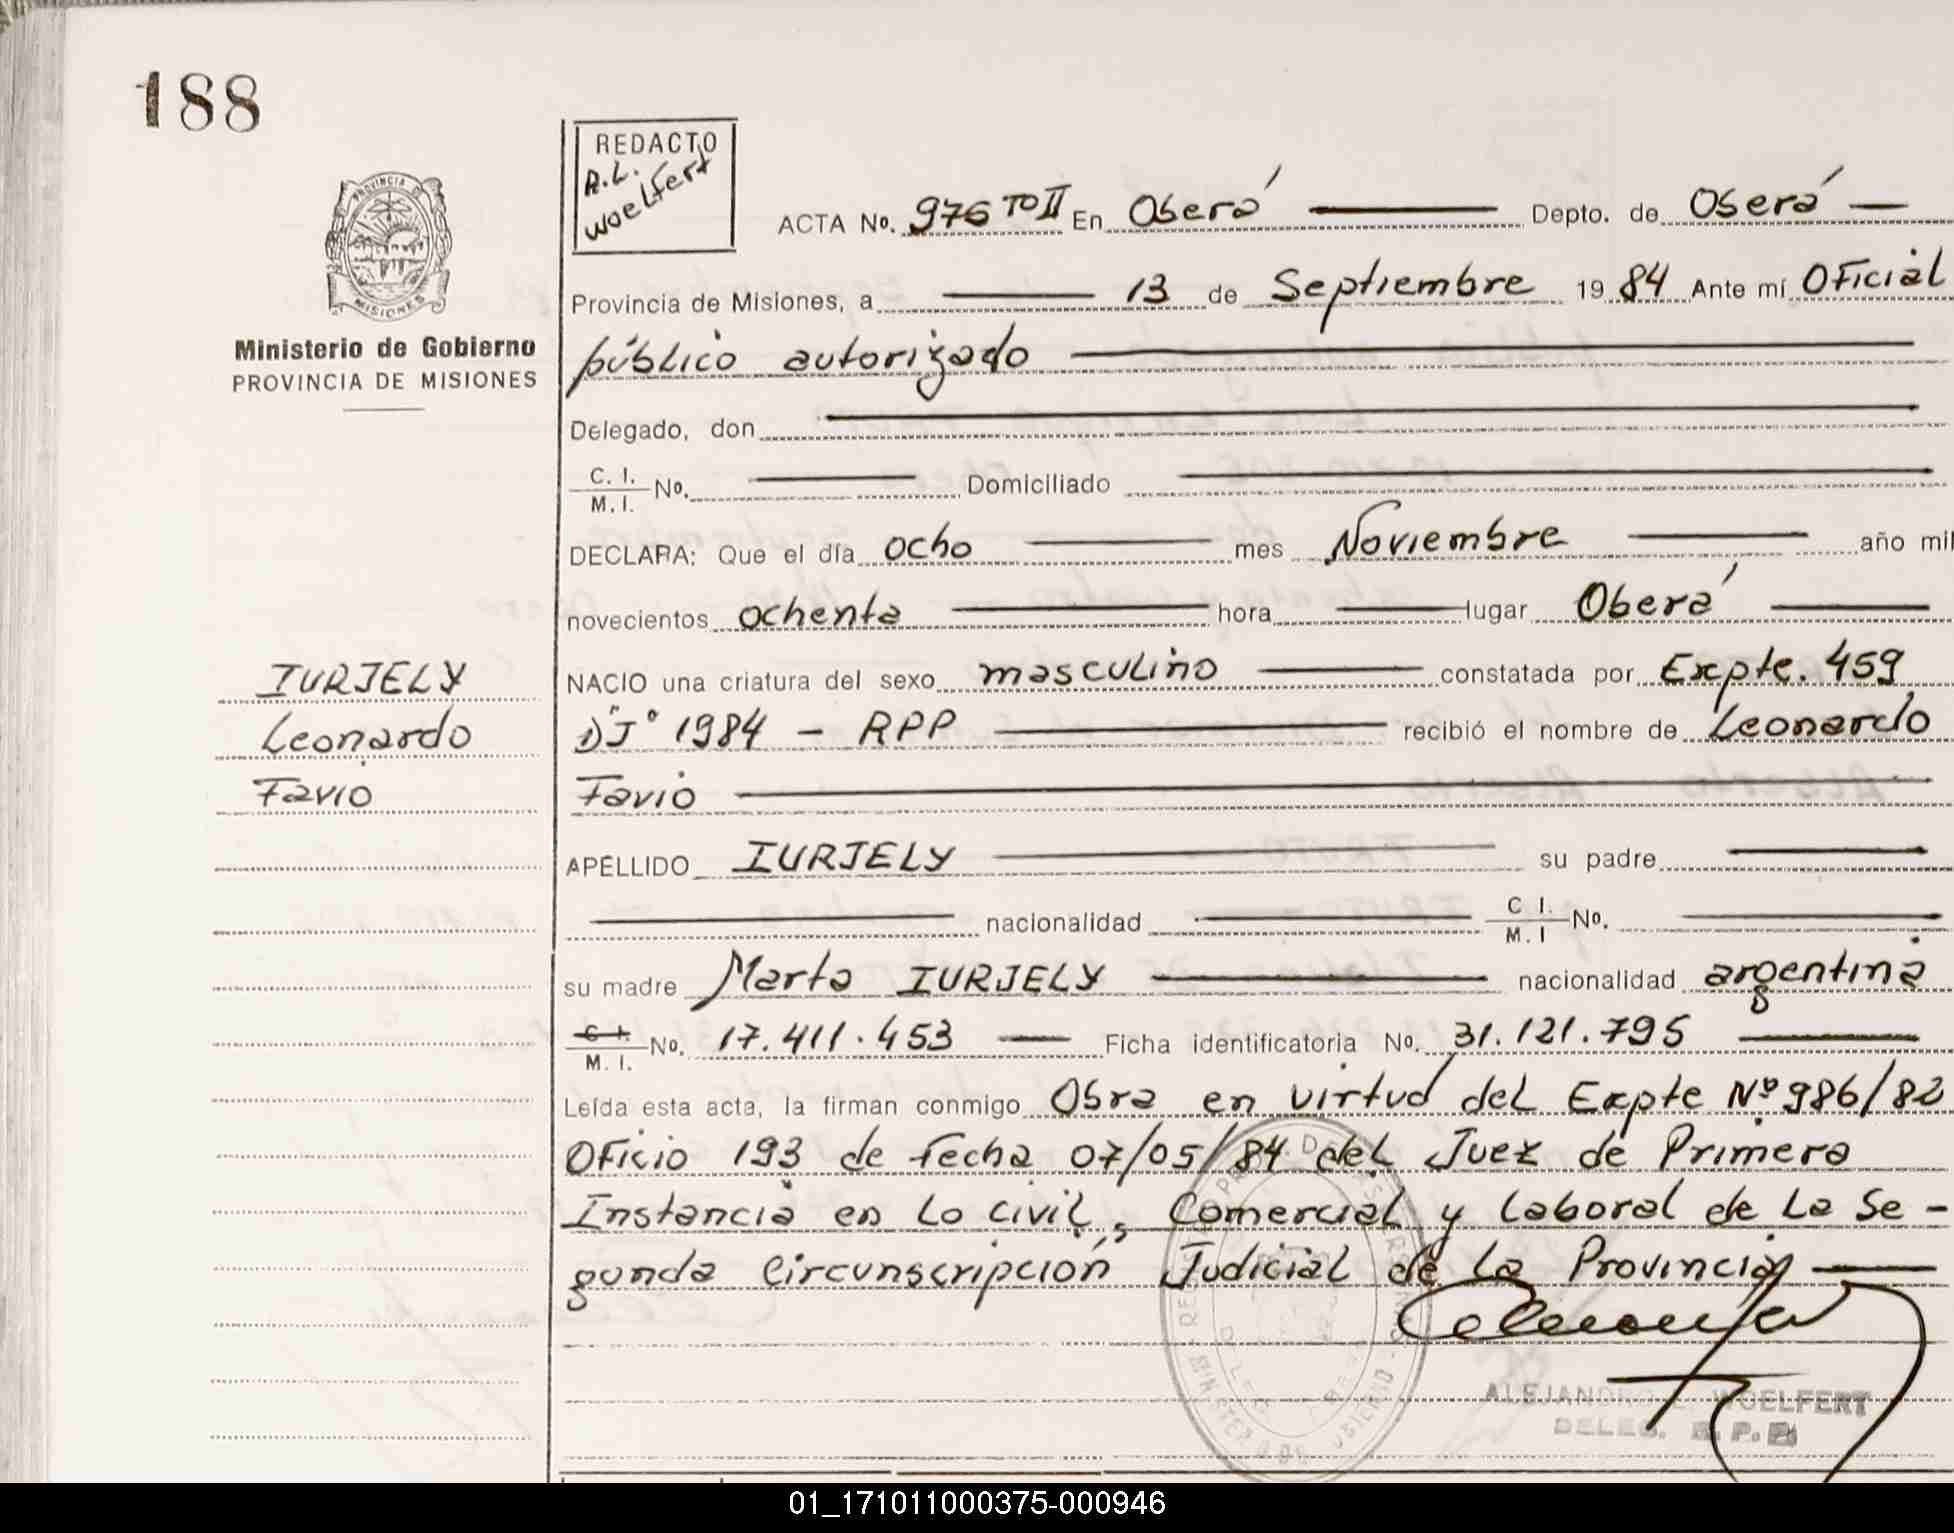 188
REDACTO
A.L.
Woelfert
PROVINCIA DE
MISIONES
Ministerio de Gobierno
PROVINCIA DE MISIONES
ACTA No. 976 TO II En Oberá Depto. de Oberá
Provincia de Misiones, a 13 de Septiembre 1984 Ante mí Oficial
público autorizado
Delegado, don
C. I.
M. I. No. Domiciliado
DECLARA: Que el día ocho mes Noviembre año mil
novecientos ochenta hora lugar Oberá
IURJELY
Leonardo
Favio
NACIO una criatura del sexo masculino constatada por Expte. 459
"DJ" 1984 - RPP recibió el nombre de Leonardo
Favio
APELLIDO IURJELY su padre
nacionalidad C I. M. I No.
su madre Marta IURJELY nacionalidad argentina
C. I.
M. I. No. 17.411.453 Ficha identificatoria No. 31.121.795
Leída esta acta, la firman conmigo Obra en virtud del Expte Nº 986/82
Oficio 193 de fecha 07/05/84 del Juez de Primera
Instancia en lo civil, Comercial y Laboral de la Se-
gunda Circunscripción Judicial de la Provincia
ALEJANDRO WOELFERT
DELEG. R.P.P.
01_171011000375-000946